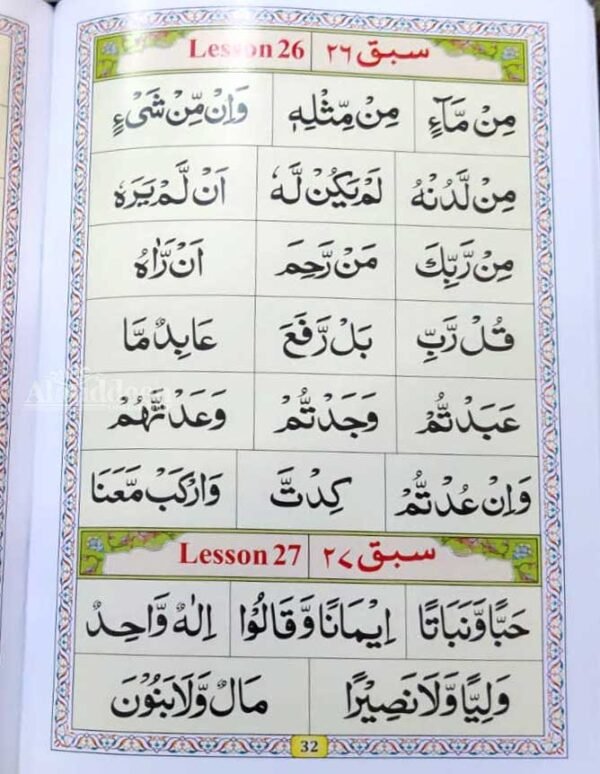 Lesson 26 سبق ٢٦
مِنْ مَّآءٍ مِنْ مِّثْلِهٖ وَاِنْ مِّنْ شَیْءٍ
مِنْ لَّدُنْهُ لَمْ یَكُنْ لَّهٗ اَنْ لَّمْ یَرَهٗ
مِنْ رَّبِّكَ مَنْ رَّحِمَ اَنْ رَّاٰهُ
قُلْ رَّبِّ بَلْ رَّفَعَ عَابِدٌ مَّا
عَبَدْتُّمْ وَجَدْتُّمْ وَعَدْتَّهُمْ
وَاِنْ عُدْتُّمْ كِدْتَّ وَارْكَبْ مَّعَنَا
Lesson 27 سبق ٢٧
حَبًّا وَّنَبَاتًا اِیْمَانًا وَّقَالُوْا اِلٰهٌ وَّاحِدٌ
وَلِیًّا وَّلَا نَصِیْرًا مَالٌ وَّلَا بَنُوْنَ
32